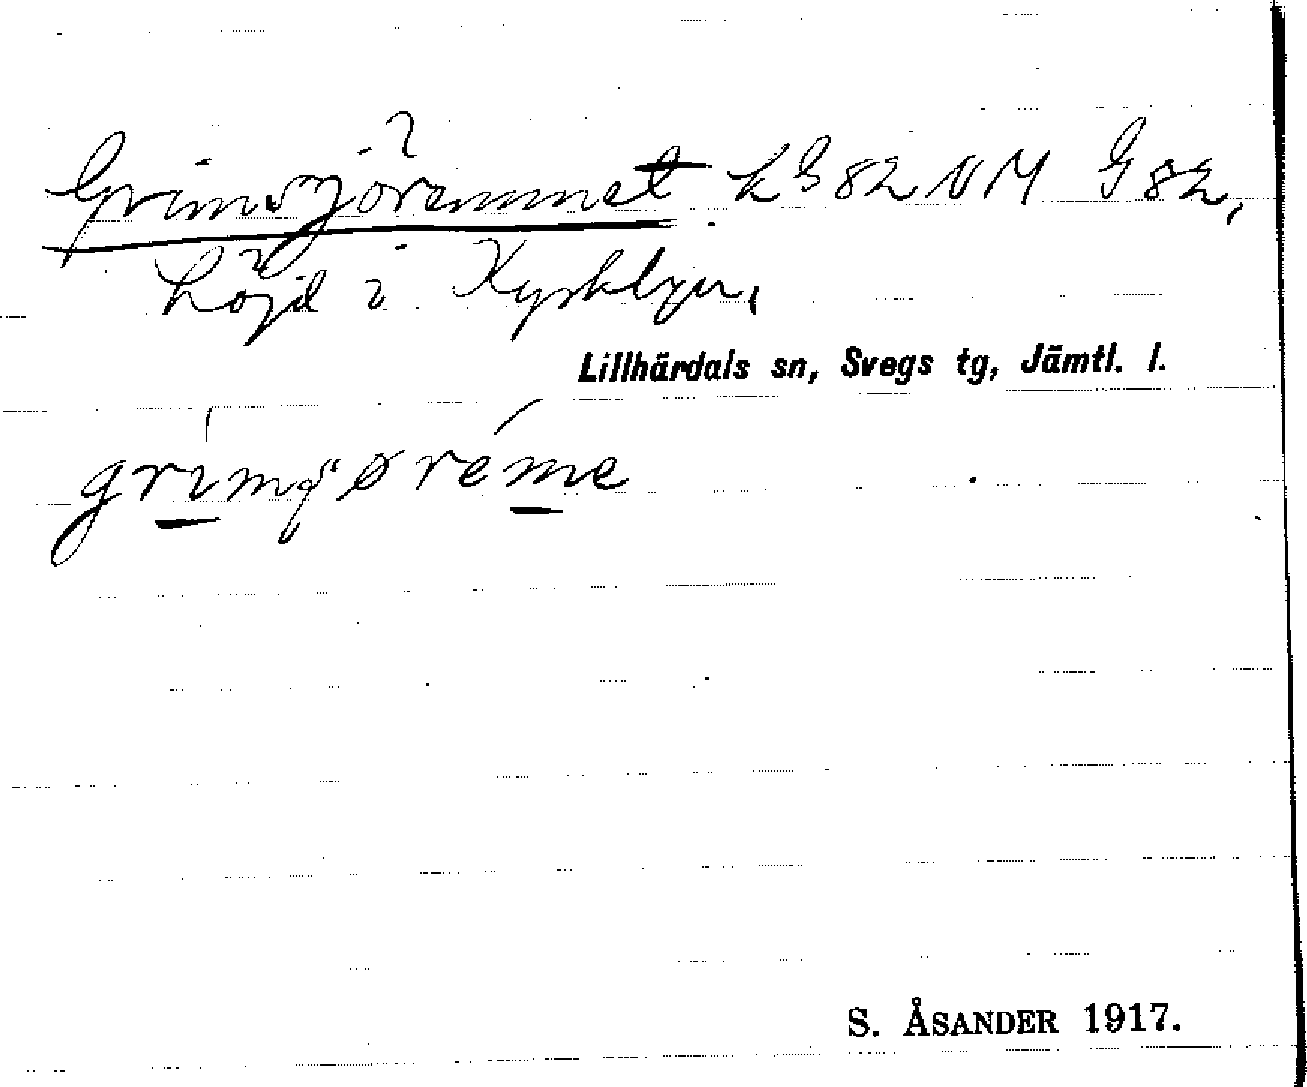 Grimsjöremmet. L G 82 NM G 82,
höjd i Kyrkbyn,
Lillhärdals sn, Svegs tg, Jämtl. l.
S. ÅSANDER 1917.